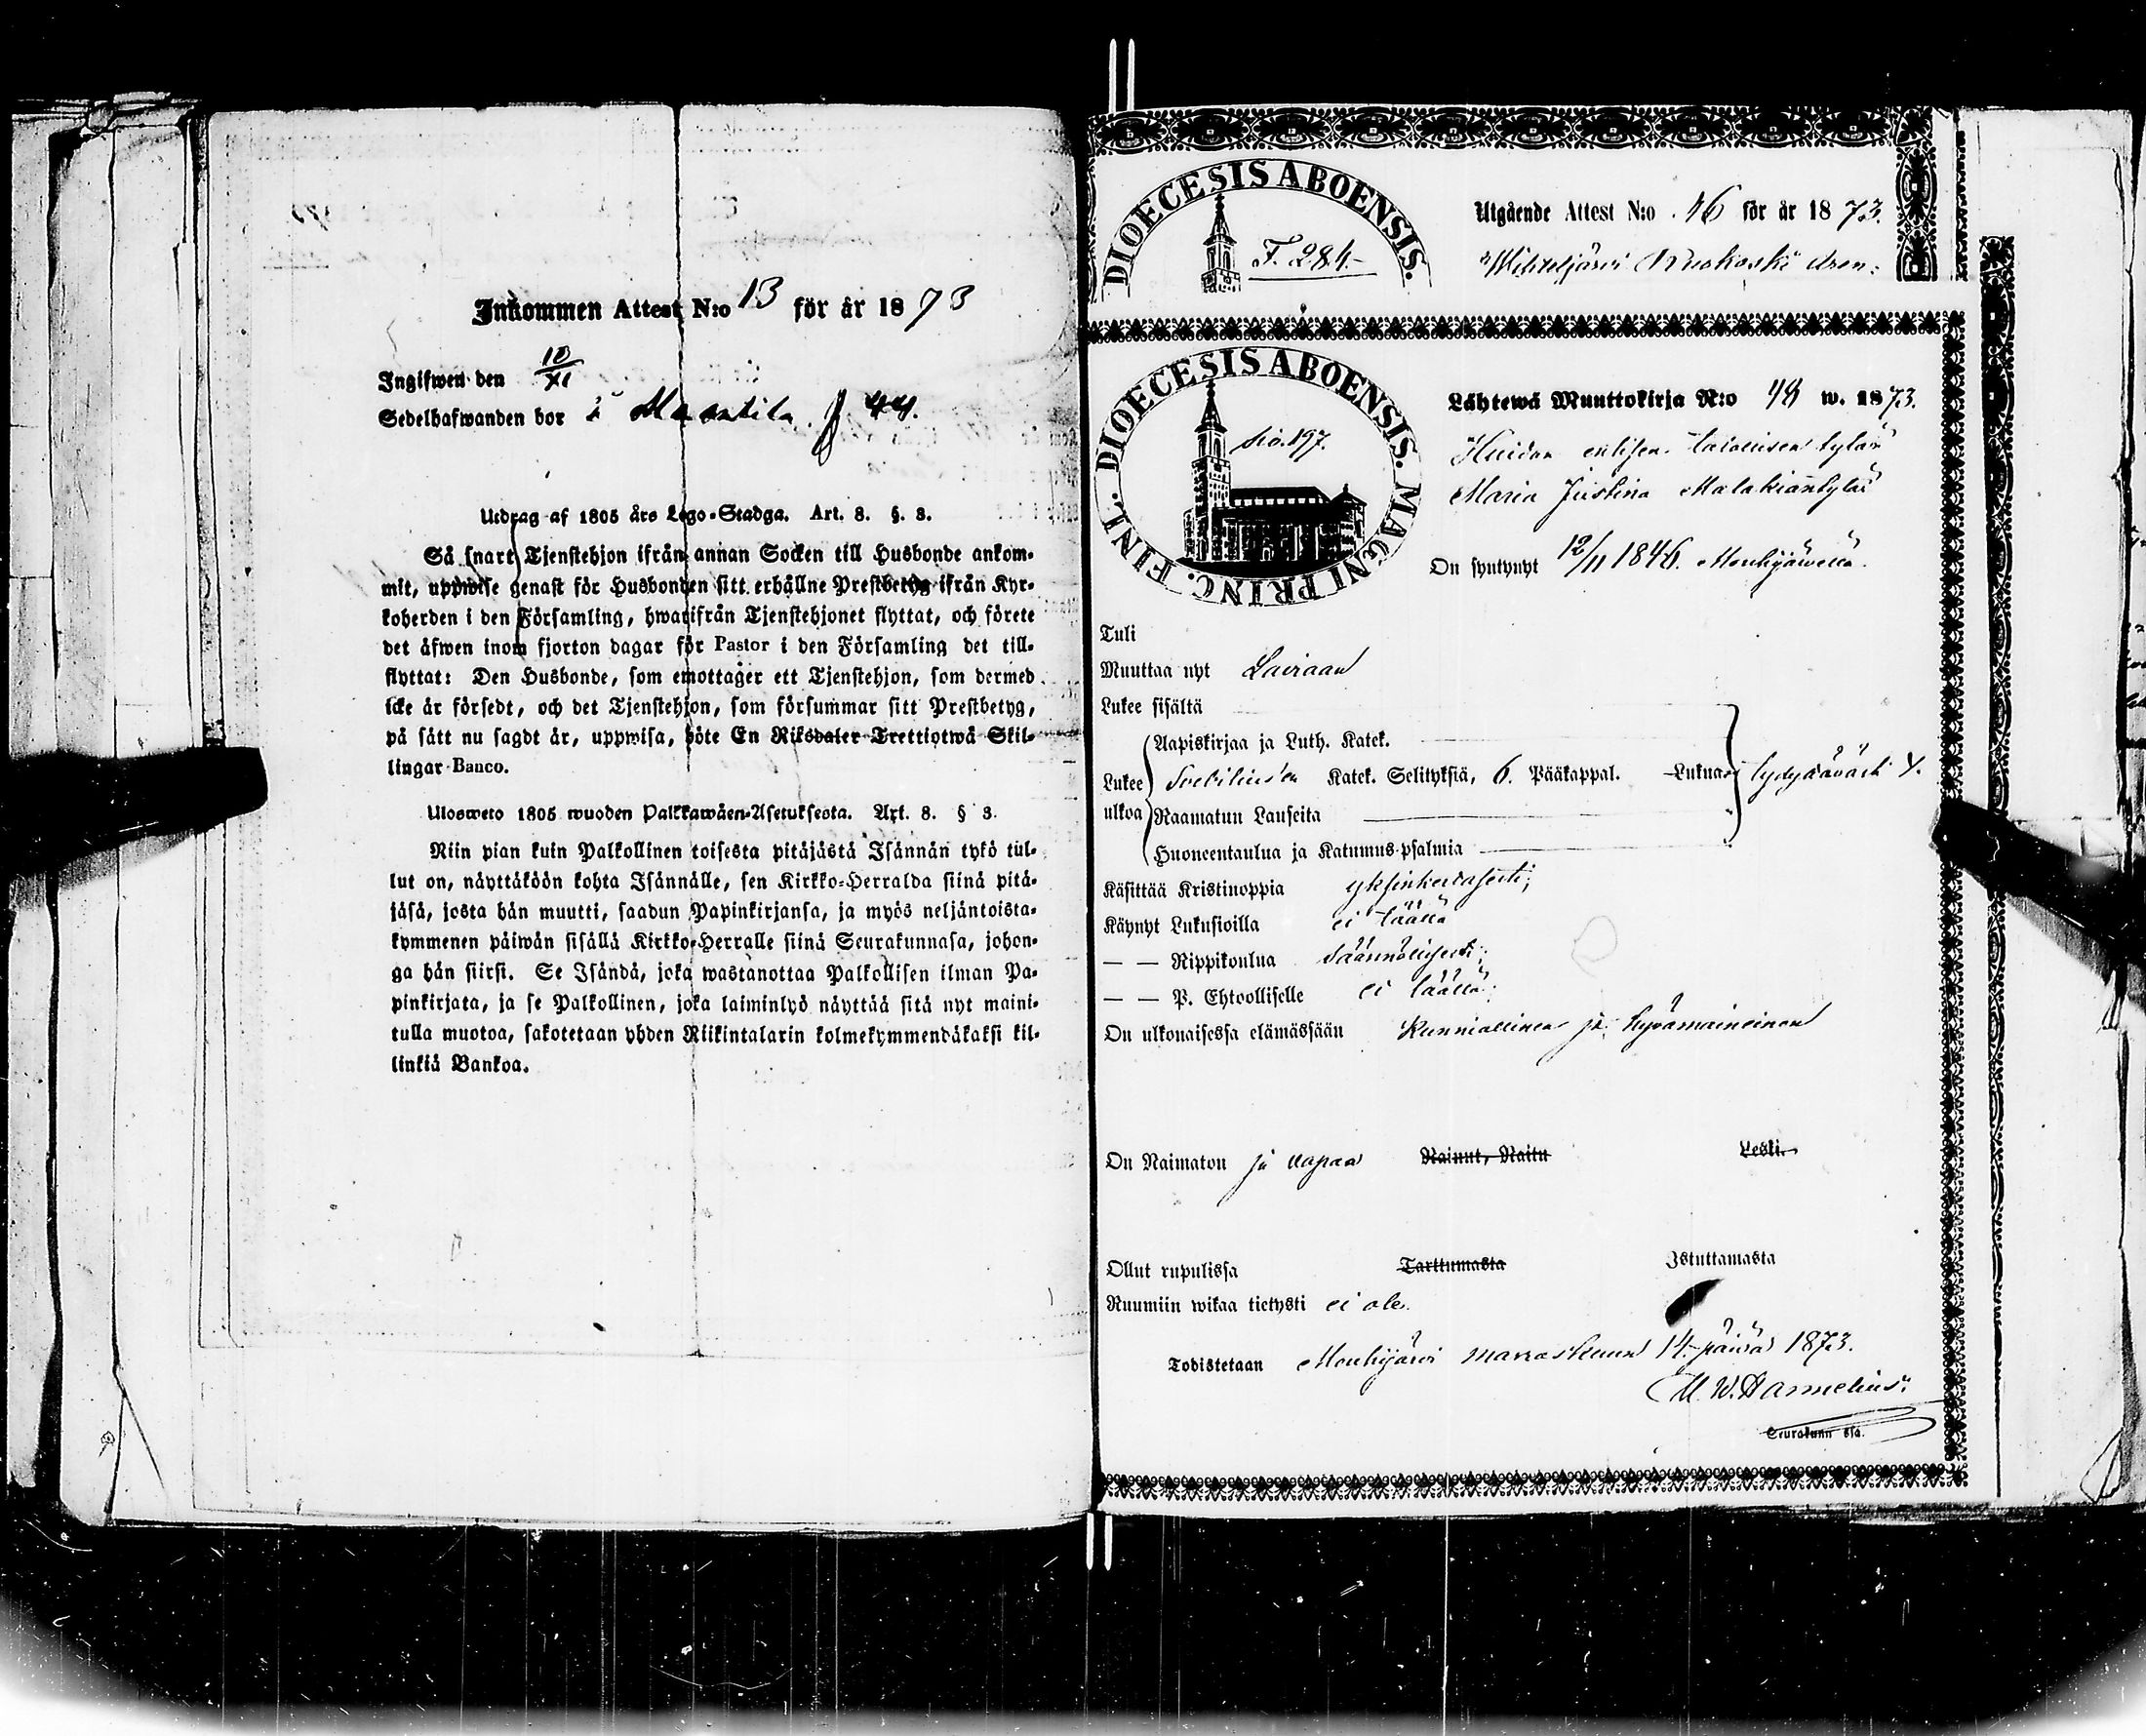 Inkommen Attest N:o 13 för år 1873
Ingifwen den 10/XI
Sedelhafwanden bor i Maantila. 44.
Utdrag af 1805 års Lego-Stadga. Art. 8. §. 3.
Så snart Tjenstehjon ifrån annan Socken till Husbonde ankom-
mit, uppwise genast för Husbonden sitt erhållne Prestbetyg ifrån Kyr-
koherden i den Församling, hwarifrån Tjenstehjonet flyttat, och förete
det äfwen inom fjorton dagar för Pastor i den Församling det till-
flyttat: Den Husbonde, som emottager ett Tjenstehjon, som dermed
icke är försedt, och det Tjenstehjon, som försummar sitt Prestbetyg,
på sätt nu sagdt är, uppwisa, böte En Riksdaler Trettiotwå Skil-
lingar Banco.
Ulosweto 1805 wuoden Palkkawäen-Asetuksesta. Art. 8. § 3.
Niin pian kuin Palkollinen toisesta pitäjästä Isännän tykö tul-
lut on, näyttäköön kohta Isännälle, sen Kirkko-Herralda siinä pitä-
jäsä, josta hän muutti, saadun Papinkirjansa, ja myös neljäntoista-
kymmenen päiwän sisällä Kirkko-Herralle siinä Seurakunnasa, johon-
ga hän siirsi. Se Isändä, joka wastanottaa Palkollisen ilman Pa-
pinkirjata, ja se Palkollinen, joka laiminlyö näyttää sitä nyt maini-
tulla muotoa, sakotetaan yhden Riikintalarin kolmekymmendäkaksi kil-
linkiä Bankoa.
DIOECESIS ABOENSIS.
F. 284.
Utgående Attest N:o 46 för år 1873.
DIOECESIS ABOENSIS. MAGNI PRINC. FINL.
siv. 197.
Lähtewä Muuttokirja N:o 48 w. 1873.
entisen talollisen tytär
Maria Justina Malakiantytär
On syntynyt 12/11 1846. Mouhijärvellä.
Tuli
Muuttaa nyt Laviaan
Lukee sisältä
Lukee ulkoa
Aapiskirjaa ja Luth. Katek.
Svebiliusen Katek. Selityksiä, 6. Pääkappal. Lukua
Raamatun Lauseita
Huoneentaulua ja Katumus-psalmia
tyydyttävästi
Käsittää Kristinoppia yksinkertaisesti;
Käynyt Lukusioilla ei täällä
— — Rippikoulua säännöllisesti;
— — P. Ehtoolliselle ei täällä;
On ulkonaisessa elämässään kunniallinen ja hyvämaineinen
On Naimaton ja vapaa Nainut, Naitu Leski.
Ollut rupulissa Tarttumasta Istuttamasta
Ruumiin wikaa tietysti ei ole.
Todistetaan Mouhijärvi marraskuun 14. päivä 1873.